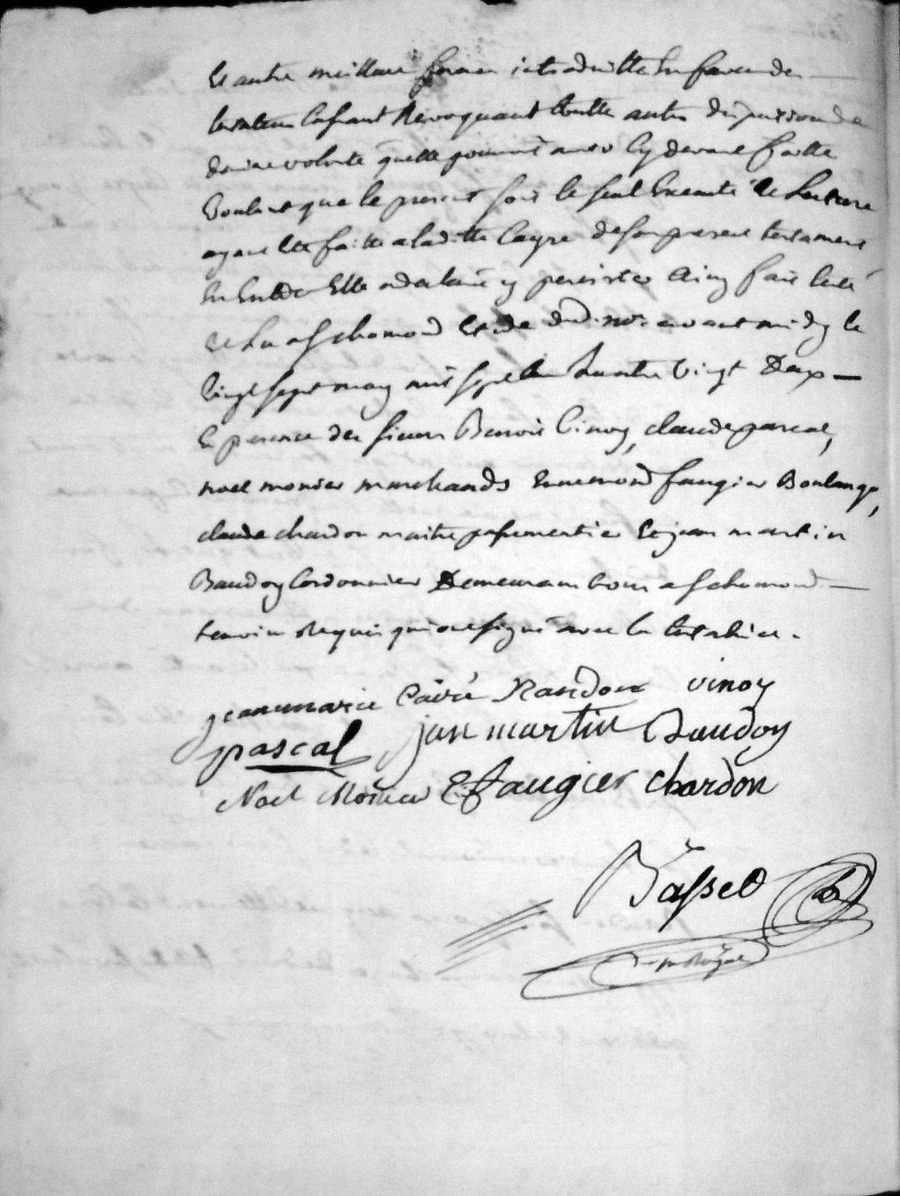 Et autre meilleure forme introduitte En faveur des
testateurs Cassant Revoquant toutte autre disposition de
derniere volonté quelle pourroit avoir Cy devant faitte
Voulant que le present soit le seul Execute Lecture
ayant Ete faitte a laditte Cayre de son present testament
Elle a declaré y persister Ainsy fait
St chamond Etude dud. no.re avant midy le
Vingt sept may mil sept Cent quatre Vingt Deux
En presence des sieurs Benoit Vinoy, claude pascal,
noel monier marchands Ennemond faugier Boulanger,
claude chardon maitre passementier Et jean martin
Baudoy Cordonnier Demeurant tous a St chamond
temoins Requis qui ont signé avec la testatrice.
jeanne marie Cairé Nandon vinoy
pascal jan martin Baudoy
Noel Monier E faugier chardon
Basset
no. Royal